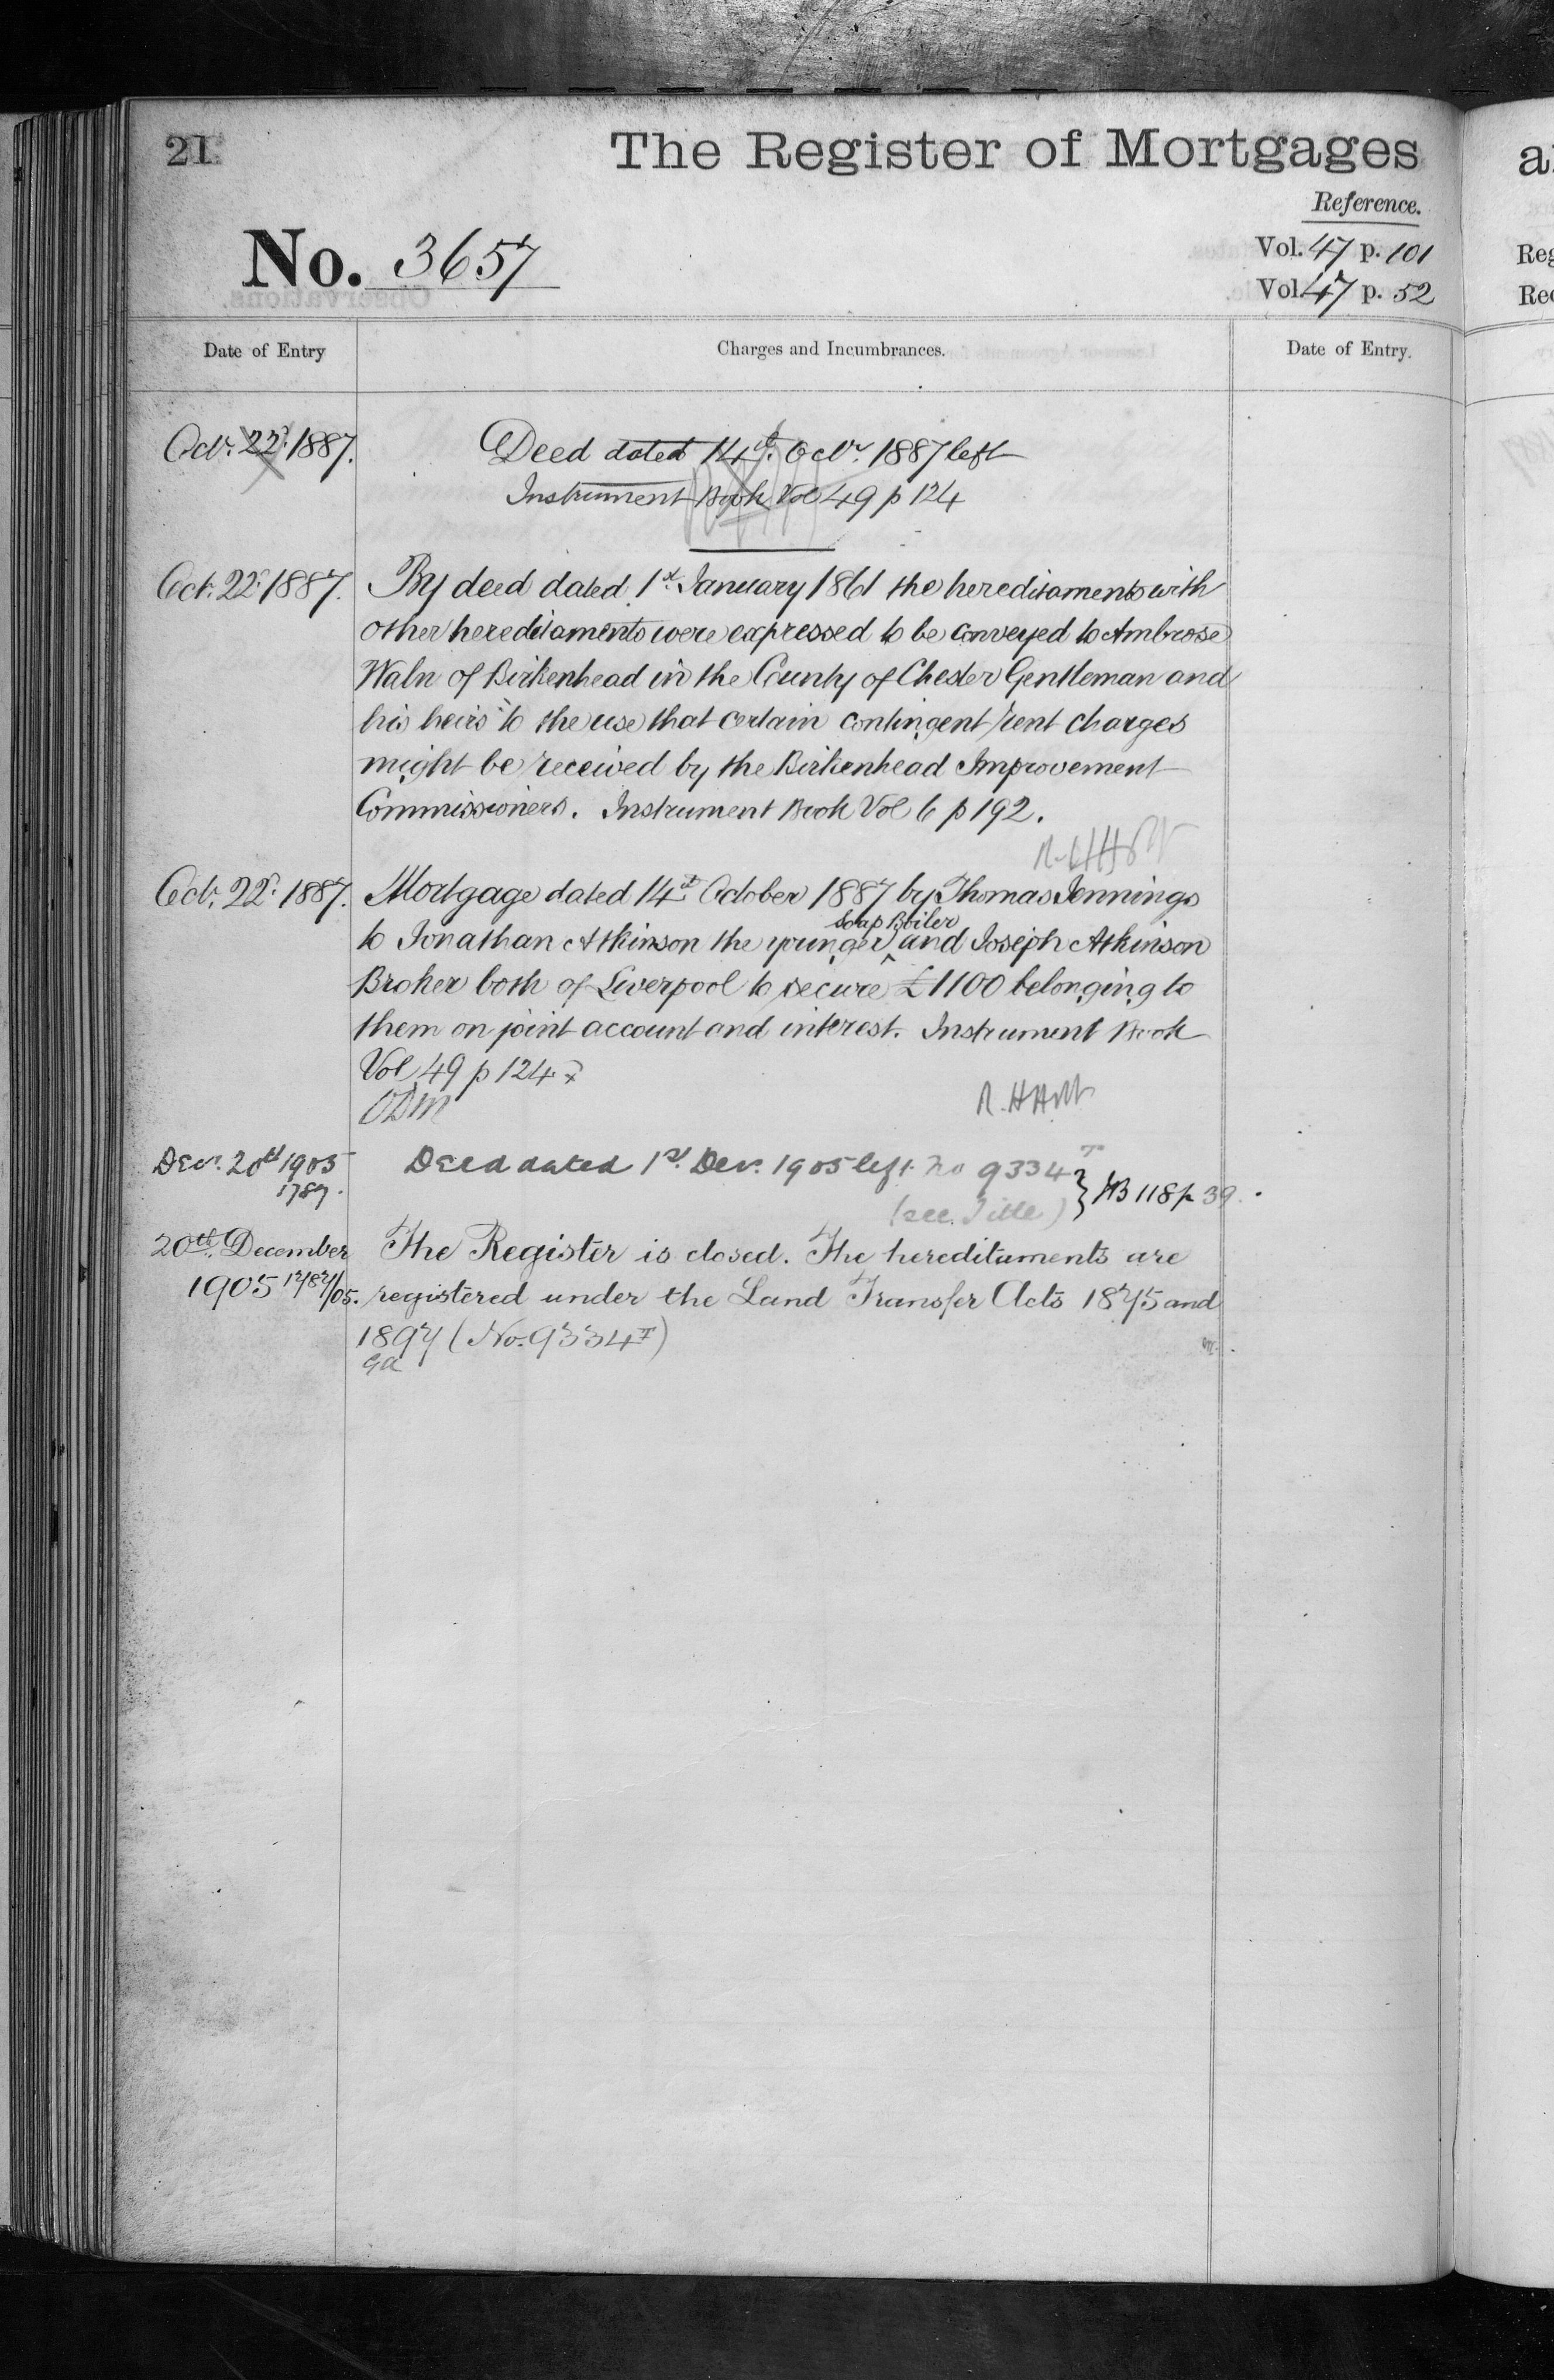 21
The Register of Mortgages
Reference.
No. 3657
Vol. 47 p. 101
Vol. 47 p. 52
Date of Entry
Charges and Incumbrances.
Date of Entry.
Oct. 22d. 1887.
Deed dated 14th. Octr. 1887 left
Instrument Book Vol 49 p 124
Oct. 22d. 1887.
By deed dated 1st. January 1861 the hereditaments with
other hereditaments were expressed to be conveyed to Ambrose
Waln of Birkenhead in the County of Chester Gentleman and
his heirs to the use that certain contingent rent charges
might be received by the Birkenhead Improvement
Commissioners. Instrument Book Vol 6 p 192.
Oct. 22d. 1887.
Mortgage dated 14th October 1887 by Thomas Jennings
Soap Boiler
to Jonathan Atkinson the younger ^ and Joseph Atkinson
Broker both of Liverpool to secure £1100 belonging to
them on joint account and interest. Instrument Book
Vol 49 p 124.
Decr. 20th 1905
1787.
Deed dated 1st. Decr. 1905 left No 9334 T
(see. Title) } IB 118 p 39.
20th. December
1905 1787/05.
The Register is closed. The hereditaments are
registered under the Land Transfer Acts 1875 and
1897 (No. 9334T)
a
Reg